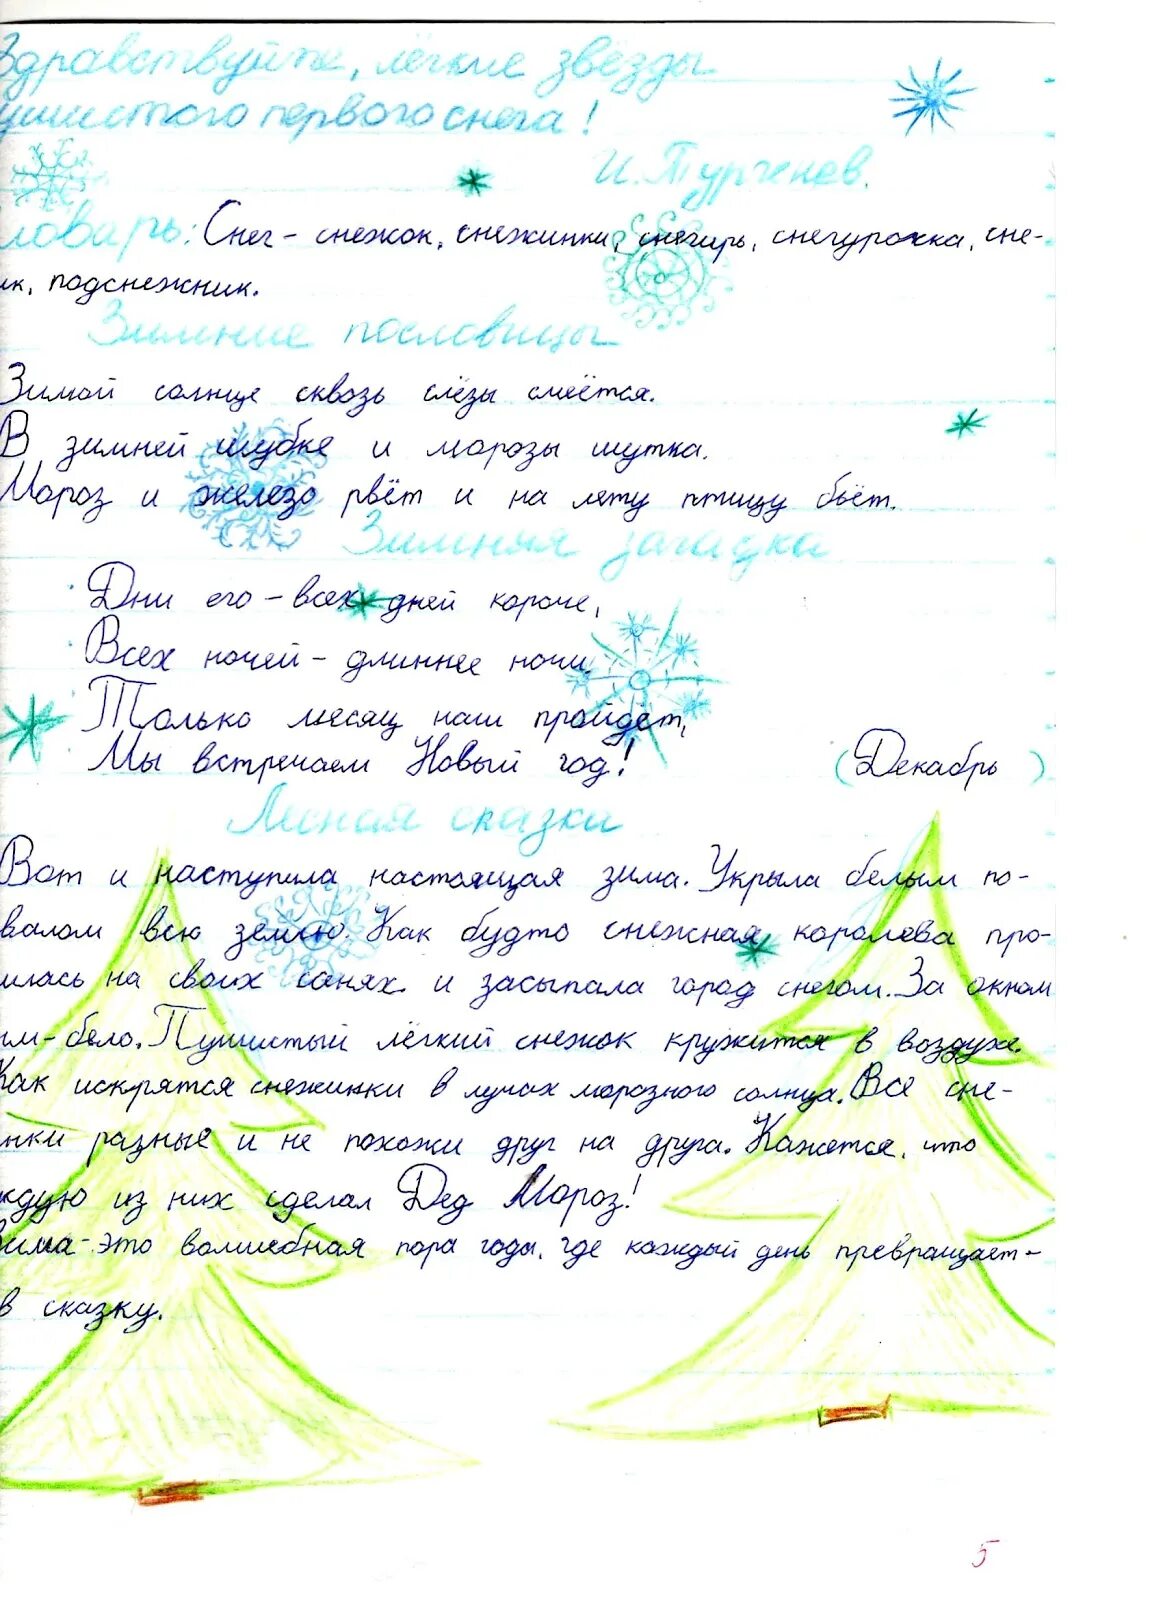 Здравствуйте, лёгкие звёзды
ушистого первого снега!
И. Тургенев.
ловарь: Снег - снежок, снежинки, снегирь, снегурочка, сне-
ик, подснежник.
Зимние пословицы
Зимой солнце сквозь слёзы смеётся.
В зимней шубке и морозы шутка.
Мороз и железо рвёт и на лету птицу бьёт.
Зимняя загадка
Дни его - всех дней короче,
Всех ночей - длиннее ночи,
Только месяц наш пройдёт,
Мы встречаем Новый год!
(Декабрь)
Лесная сказки
Вот и наступила настоящая зима. Укрыла белым по-
валом всю землю. Как будто снежная королева про-
илась на своих санях и засыпала город снегом. За окном
ым-бело. Пушистый лёгкий снежок кружится в воздухе.
Как искрятся снежинки в лучах морозного солнца. Все сне-
инки разные и не похожи друг на друга. Кажется, что
ждую из них сделал Дед Мороз!
Зима - это волшебная пора года, где каждый день превращает-
в сказку.
5